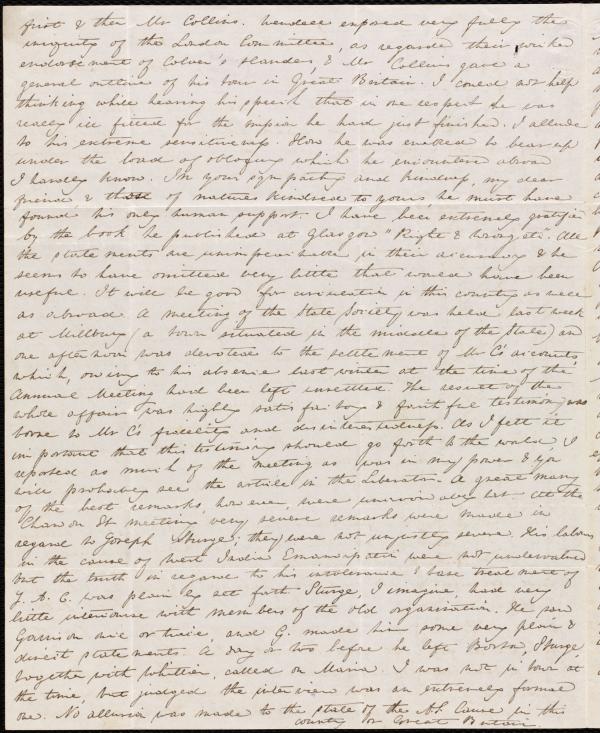 first & then Mr Collins. Wendell exposed very fully the
iniquity of the London Committee, as regards their wicked
endorsement of Colver's slanders, & Mr Collins gave a
general outline of his tour in Great Britain. I could not help
thinking while hearing his speech that in one respect he was
really ill fitted for the mission he had just finished. I allude
to his extreme sensitiveness. How he was enabled to bear up
under the load of obloquy which he encountered abroad
I hardly know. In your sympathy and kindness, my dear
friend, & those of natures kindred to yours, he must have
found his only human support. I have been extremely gratified
by the book he published at Glasgow "Right & Wrong &c". All
the statements are unimpeachable in their accuracy & he
seems to have omitted very little that would have been
useful. It will be good for circulation in this country as well
as abroad. A meeting of the State Society was held last week
at Millbury (a town situated in the middle of the State) and
one afternoon was devoted to the settlement of Mr C's accounts,
which, owing to his absence last winter at the time of the
Annual Meeting had been left unsettled. The result of the
whole affair was highly satisfactory & faithful testimony was
borne to Mr C's fidelity and disinterestedness. As I felt it
important that this testimony should go forth to the world, I
reported as much of the meeting as was in my power & you
will probably see the article in the Liberator. A great many
of the best remarks, however, were unavoidably lost. At the
Chardon St meeting very severe remarks were made in
regard to Joseph Sturge; they were not unjustly severe. His labours
in the cause of West India Emancipation were not undervalued
but the truth in regard to his intolerance & base treatment of
J. A. C. was plainly set forth. Sturge, I imagine, had very
little intercourse with members of the old organization. He saw
Garrison once or twice, and G. made him some very plain &
direct statements. A day or two before he left Boston, Sturge,
together with Whittier, called on Maria. I was not in town at
the time, but judged the interview was an extremely formal
one. No allusion was made to the state of the A.S. Cause in this
country or Great Britain.